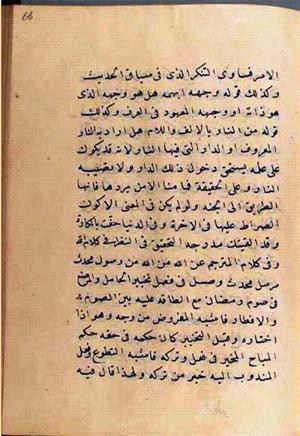 66
الامر فساوى التنكر الذى فى مساق الحديث
وكذلك قوله وجهه ابهمه هل هو وجهه الذى
هو ذاته او وجهه المعهود فى العرف وكذلك
قوله من النار بالالف واللام هل اراد به النار
المعروف او الدار التى فيها النار لانه قد يكون
على عمل يستحق دخول ذلك الدار ولا تصيبه
النار وعلى الحقيقة فما منا الا من يردها فانها
الطريق الى الجنة ولو لم يكن فى المعنى الا كون
الصراط عليها فى الاخرة وفى الدنيا حفت بالمكاره
وقد القيتك مدرجة التحقيق فى النظر فى كلام الله
وفى كلام المترجم عن الله من الله من رسول محدث
مرسل محدث وصل فى فصل تخيير الحامل والمرضع
فى صوم رمضان مع الطاقة عليه بين الصوم
والافطار فاشبه المفروض من وجه وهو اذا
اختاره وقبل التخيير كان حكمه فى حقه حكم
المباح المخير فى فعله وتركه فاشبه التطوع وفعل
المندوب اليه خير من تركه ولهذا قال فيه